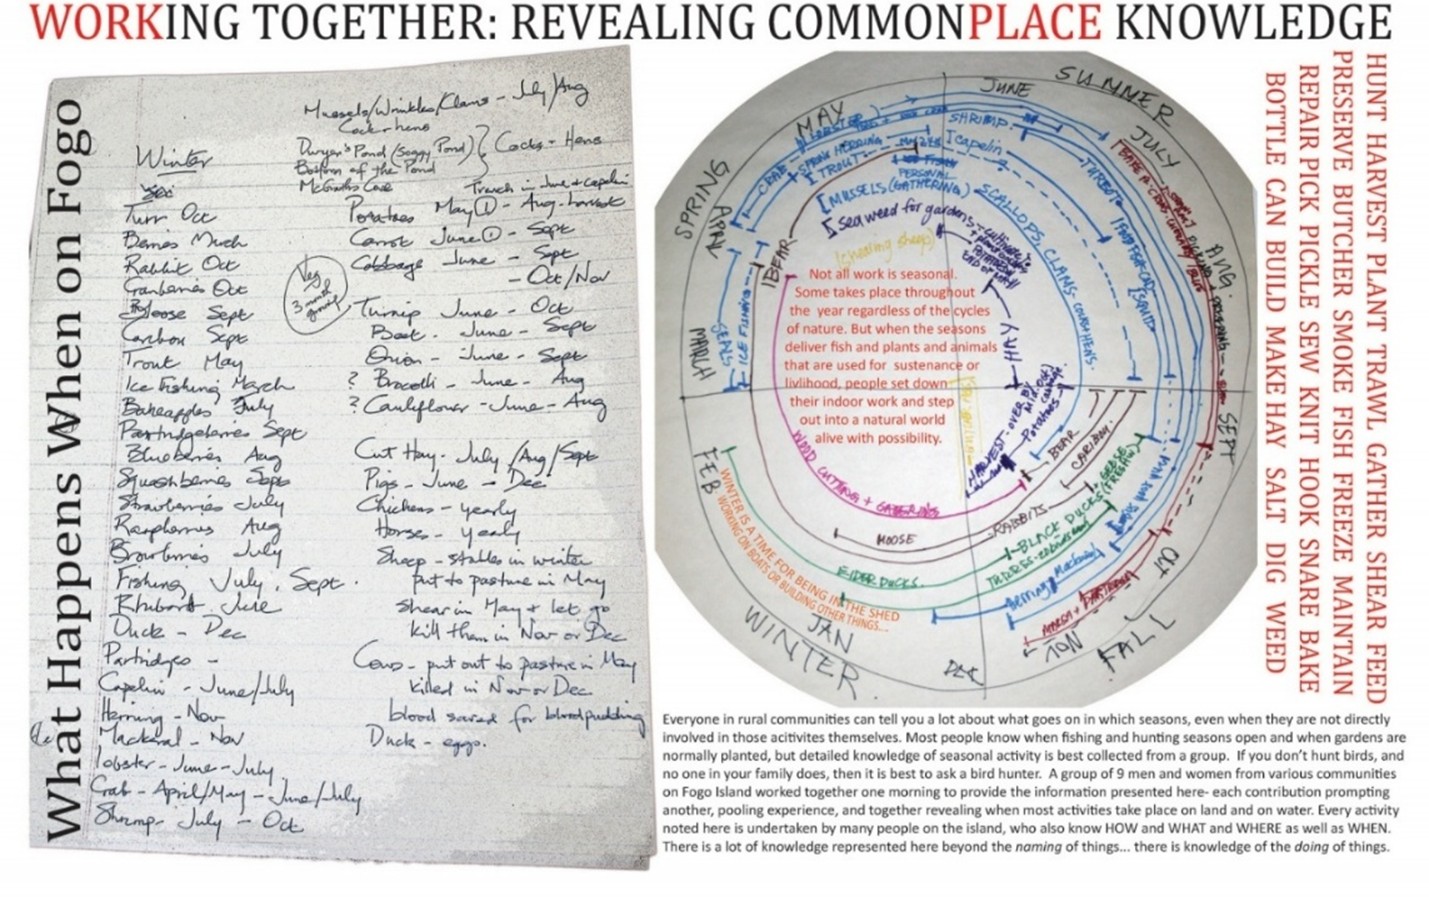 WORKING TOGETHER: REVEALING COMMONPLACE KNOWLEDGE
What Happens When on Fogo
Mussels/Wrinkles/Clams - July/Aug
Cockerhens
Dwyer's Pond (Soggy Pond) } Cocks - Hens
Bottom of the Pond
McGraths Cove
Winter
Trench in June + capelin
Turr Oct
Potatoes May ① - Aug-harvest
Berries March
Carrot June ① - Sept
Rabbit Oct
Cabbage June - Sept
- Oct/Nov
Cranberries Oct
Veg
3 month
growing
Moose Sept
Turnip June - Oct
Caribou Sept
Beet - June - Sept
Trout May
Onion - June - Sept
Ice Fishing March
? Brocolli - June - Aug
Bakeapples July
? Cauliflower - June - Aug
Partridgeberries Sept
Blueberries Aug
Cut Hay - July /Aug/Sept
Squashberries Sept
Pigs - June - Dec
Strawberries July
Chickens - yearly
Raspberries Aug
Horses - yearly
July
Sheep - stables in winter
Fishing July, Sept.
put to pasture in May
Rhubarb June
shear in May + let go
Duck - Dec
kill them in Nov or Dec
Partridges -
Cows - put out to pasture in May
Capelin - June/July
killed in Nov or Dec
Herring - Nov
blood saved for bloodpudding
Mackeral - Nov
Duck - eggs.
Lobster - June - July
Crab - April/May - June/July
Shrimp - July - Oct
SUMMER
JUNE
MAY
JULY
SPRING
APRIL
AUG.
MARCH
SEPT
FEB
OCT
FALL
NOV
JAN
WINTER
DEC
LOBSTER
SHRIMP
CRAB
SPRING HERRING
Capelin
TROUT
TURBOT
PERSONAL
[MUSSELS (GATHERING)
SCALLOPS, CLAMS, COCK HENS
[Sea weed for gardens
(shearing sheep)
SQUID
BEAR
ICE FISHING
SEALS
HAY
HARVEST - OVER BY
Potatoes
BEAR
CARIBOU
WOOD CUTTING + GATHERING
RABBITS
MOOSE
BLACK DUCKS
EIDER DUCKS
Herring
Mackerel
Not all work is seasonal.
Some takes place throughout
the year regardless of the cycles
of nature. But when the seasons
deliver fish and plants and animals
that are used for sustenance or
livlihood, people set down
their indoor work and step
out into a natural world
alive with possibility.
WINTER IS A TIME FOR BEING IN THE SHED
WORKING ON BOATS OR BUILDING OTHER THINGS...
HUNT HARVEST PLANT TRAWL GATHER SHEAR FEED
PRESERVE BUTCHER SMOKE FISH FREEZE MAINTAIN
REPAIR PICK PICKLE SEW KNIT HOOK SNARE BAKE
BOTTLE CAN BUILD MAKE HAY SALT DIG WEED
Everyone in rural communities can tell you a lot about what goes on in which seasons, even when they are not directly
involved in those acitivites themselves. Most people know when fishing and hunting seasons open and when gardens are
normally planted, but detailed knowledge of seasonal activity is best collected from a group. If you don't hunt birds, and
no one in your family does, then it is best to ask a bird hunter. A group of 9 men and women from various communities
on Fogo Island worked together one morning to provide the information presented here- each contribution prompting
another, pooling experience, and together revealing when most activities take place on land and on water. Every activity
noted here is undertaken by many people on the island, who also know HOW and WHAT and WHERE as well as WHEN.
There is a lot of knowledge represented here beyond the naming of things... there is knowledge of the doing of things.